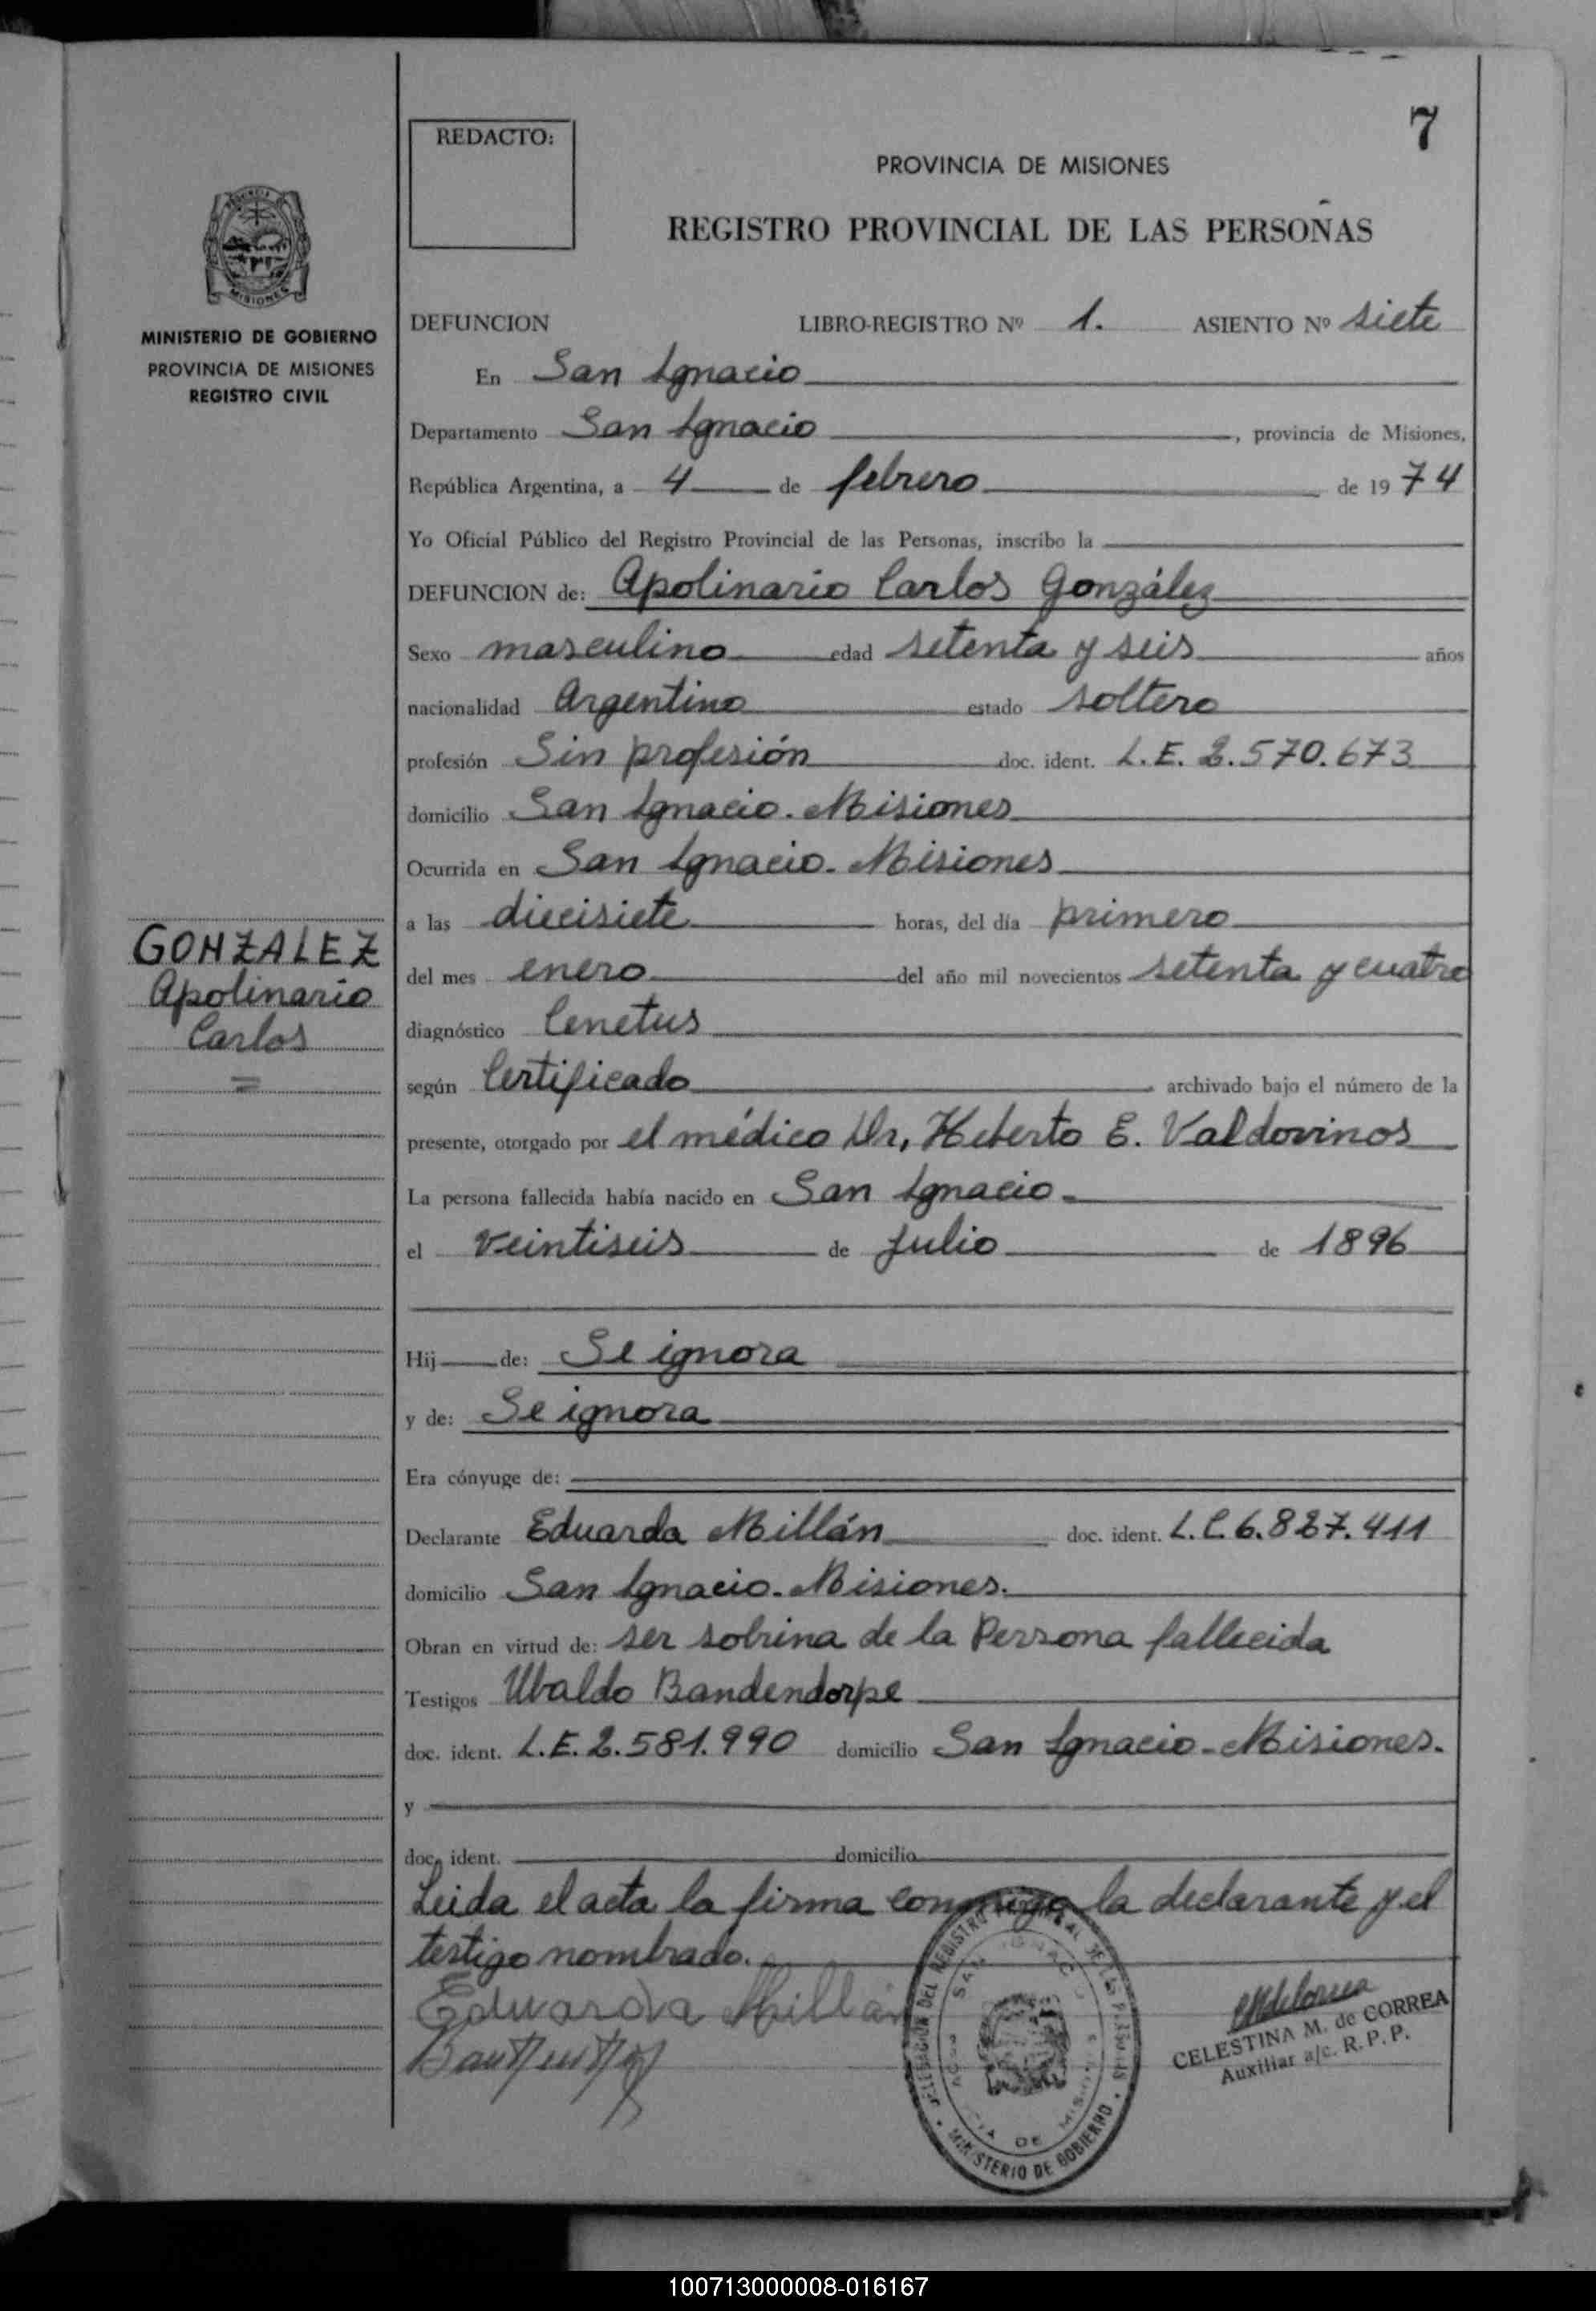 7
REDACTO:
PROVINCIA DE MISIONES
REGISTRO PROVINCIAL DE LAS PERSONAS
MISIONES
MINISTERIO DE GOBIERNO
PROVINCIA DE MISIONES
REGISTRO CIVIL
DEFUNCION LIBRO-REGISTRO Nº 1. ASIENTO Nº siete
En San Ignacio
Departamento San Ignacio, provincia de Misiones,
República Argentina, a 4 de febrero de 1974
Yo Oficial Público del Registro Provincial de las Personas, inscribo la
DEFUNCION de: Apolinario Carlos González
Sexo masculino edad setenta y seis años
nacionalidad Argentino estado soltero
profesión Sin profesión doc. ident. L.E. 2.570.673
domicilio San Ignacio. Misiones
Ocurrida en San Ignacio. Misiones
a las diecisiete horas, del día primero
GONZALEZ
Apolinario
Carlos
=
del mes enero del año mil novecientos setenta y cuatro
diagnóstico Cenetus
según Certificado archivado bajo el número de la
presente, otorgado por el médico Dr, Heberto E. Valdovinos
La persona fallecida había nacido en San Ignacio
el veintiseis de Julio de 1896
Hij de: Se ignora
y de: Se ignora
Era cónyuge de:
Declarante Eduarda Millán doc. ident. L.C. 6.827.411
domicilio San Ignacio. Misiones.
Obran en virtud de: ser sobrina de la Persona fallecida
Testigos Ubaldo Bandendorpe
doc. ident. L.E. 2.581.990 domicilio San Ignacio-Misiones.
y
doc. ident. domicilio
Leida el acta la firma conmigo la declarante y el
testigo nombrado.
Eduarda Millán
DELEGACION DEL REGISTRO PROVINCIAL DE LAS PERSONAS
SAN IGNACIO
PROVINCIA DE MISIONES
MINISTERIO DE GOBIERNO
CELESTINA M. de CORREA
Auxiliar a/c. R. P. P.
100713000008-016167